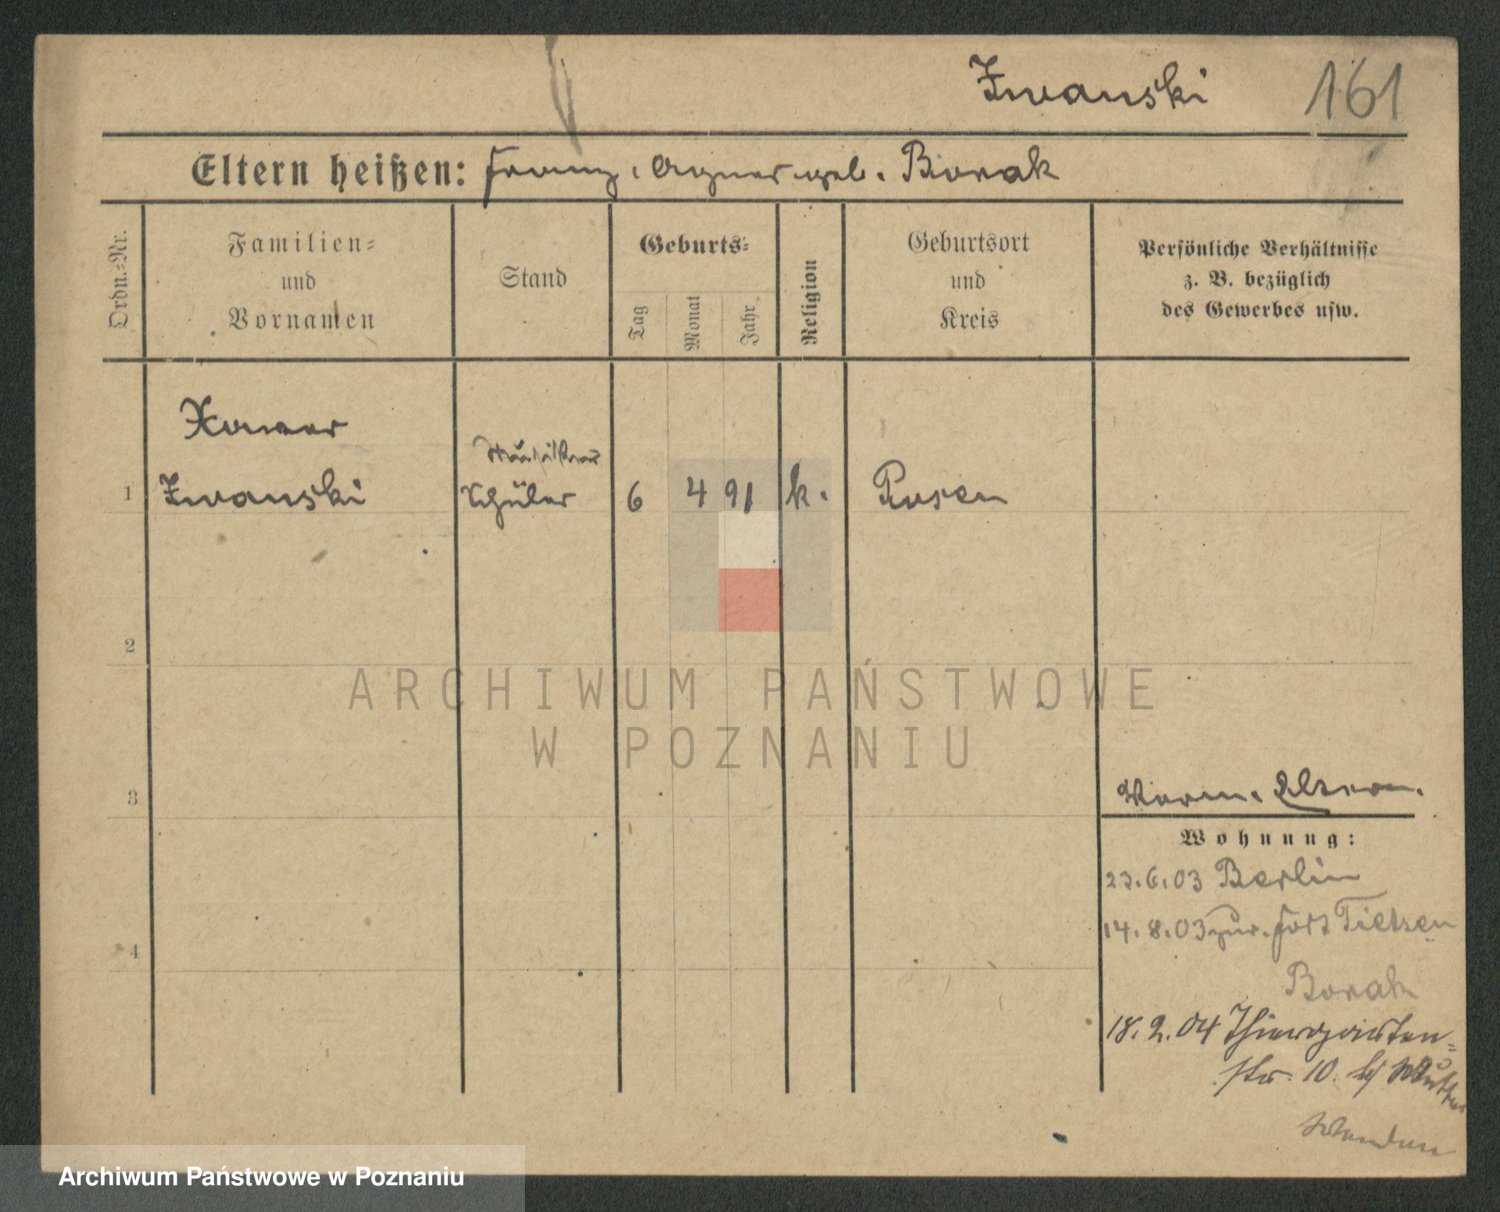 Iwanski 161
Eltern heißen: Franz, Agnes geb. Borak
Ordn.=Nr.
Familien=
und
Vornamen
Stand
Geburts=
Tag
Monat
Jahr
Religion
Geburtsort
und
Kreis
Persönliche Verhältnisse
z. B. bezüglich
des Gewerbes usw.
Xaver
1 Iwanski Schüler 6 4 91 k. Posen
2
3
4
Eltern.
Wohnung:
23.6.03 Berlin
14.8.03 zur. Fort Tietzen
Borak
18.2.04 Thiergarten=
str. 10. bj Mutter
Wenden
ARCHIWUM PAŃSTWOWE
W POZNANIU
Archiwum Państwowe w Poznaniu